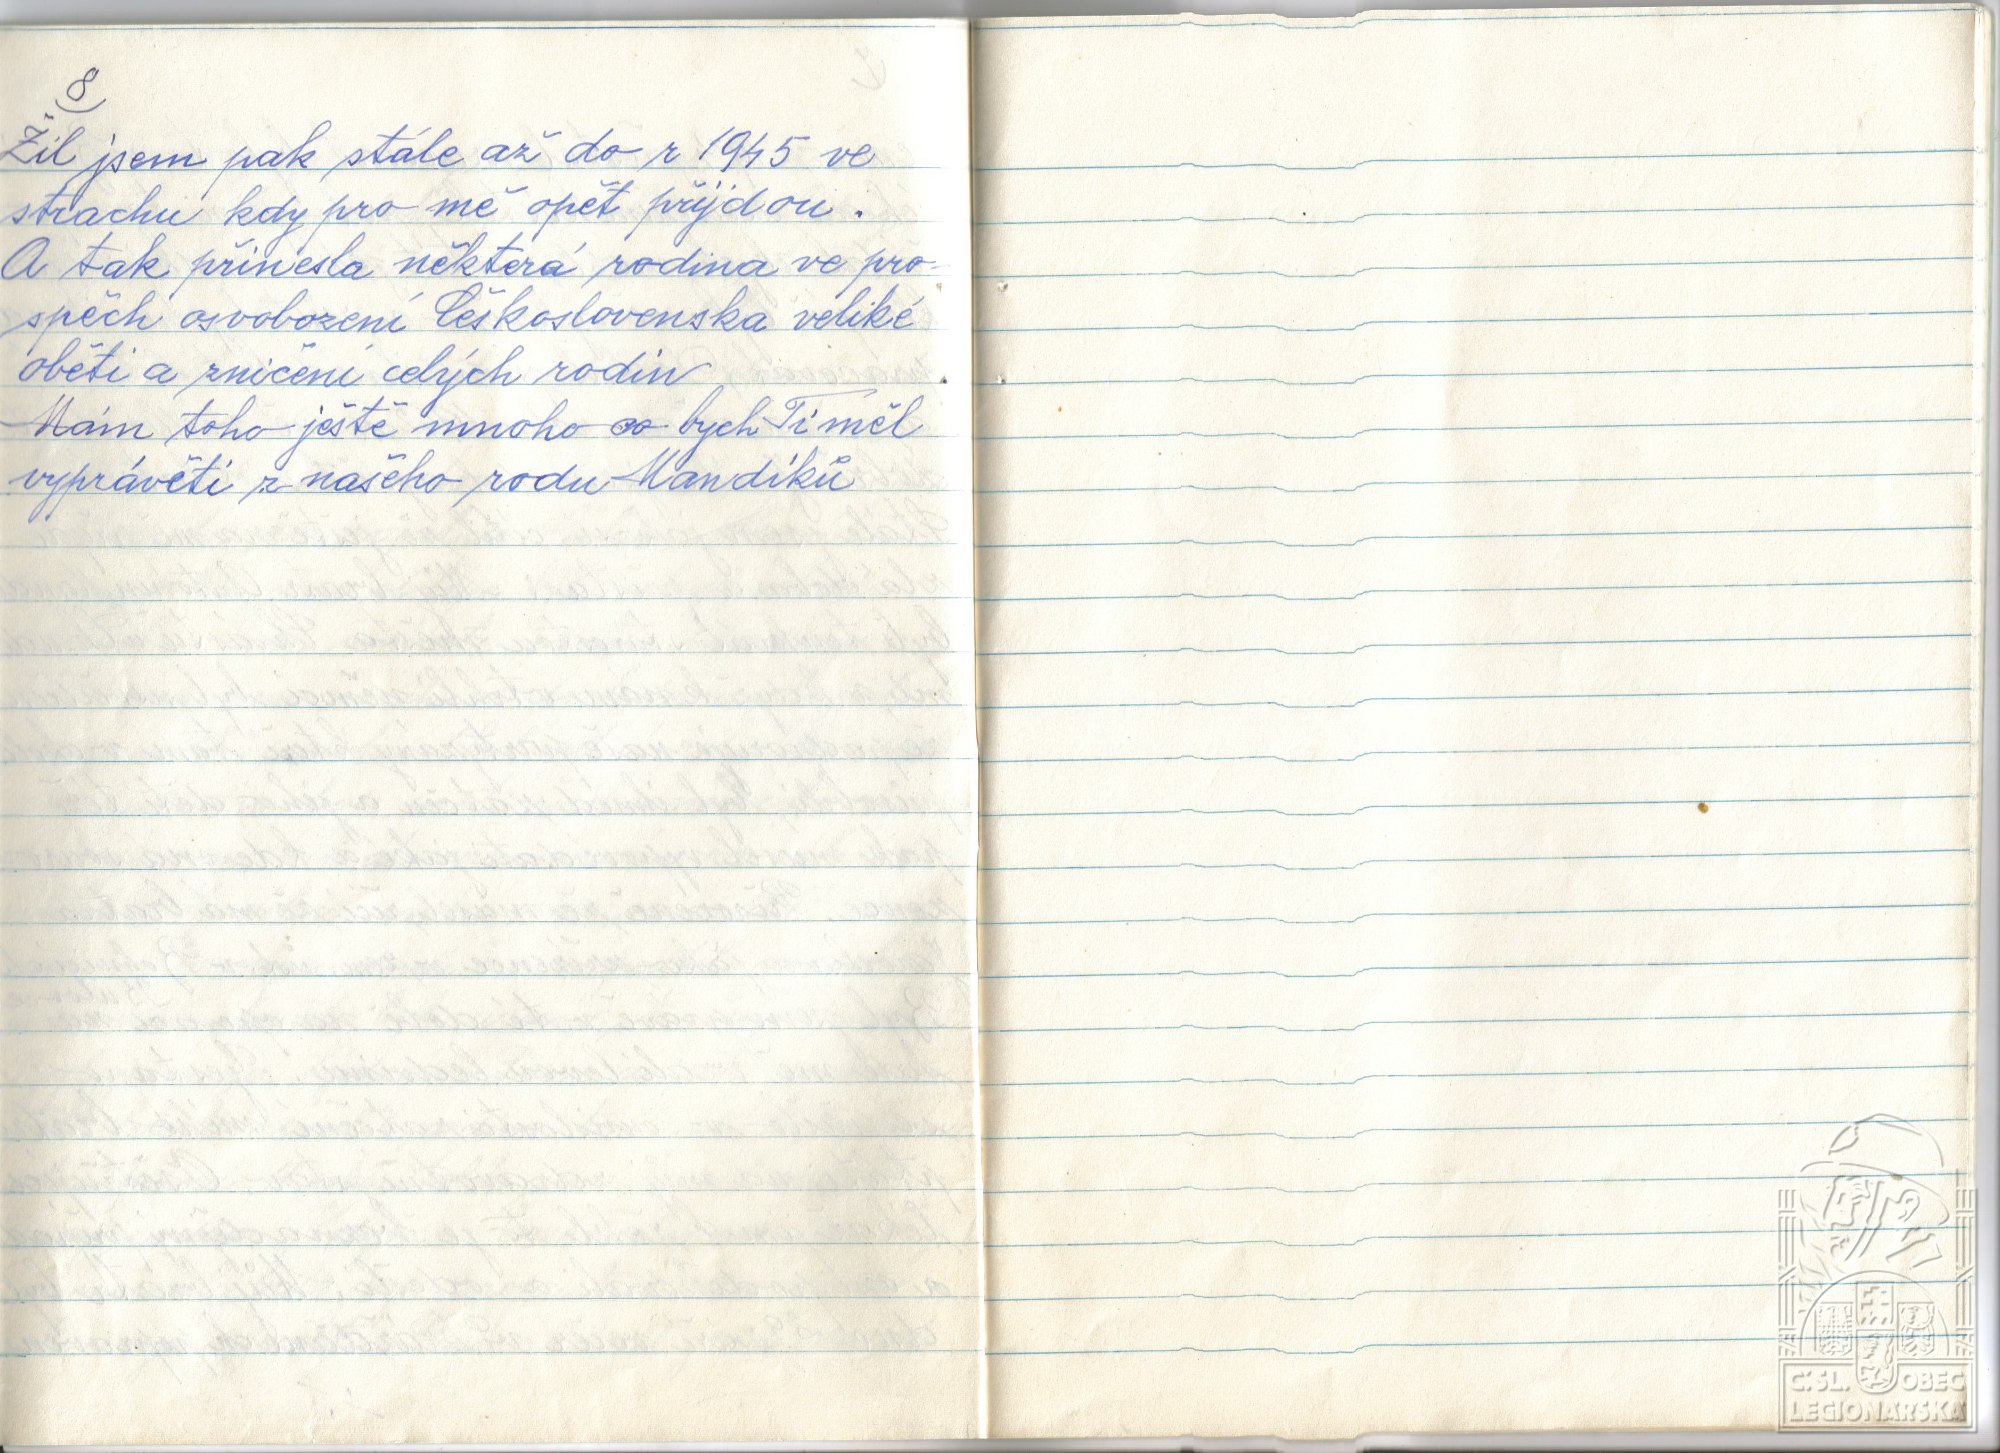 8
Žil jsem pak stále až do r 1945 ve
strachu kdy pro mě opět přijdou.
A tak přinesla některá rodina ve pro-
spěch osvobození Československa veliké
oběti a zničení celých rodin
Mám toho ještě mnoho co bych Ti měl
vyprávěti z našeho rodu Mandíků
Č. SL. OBEC
LEGIONÁŘSKÁ